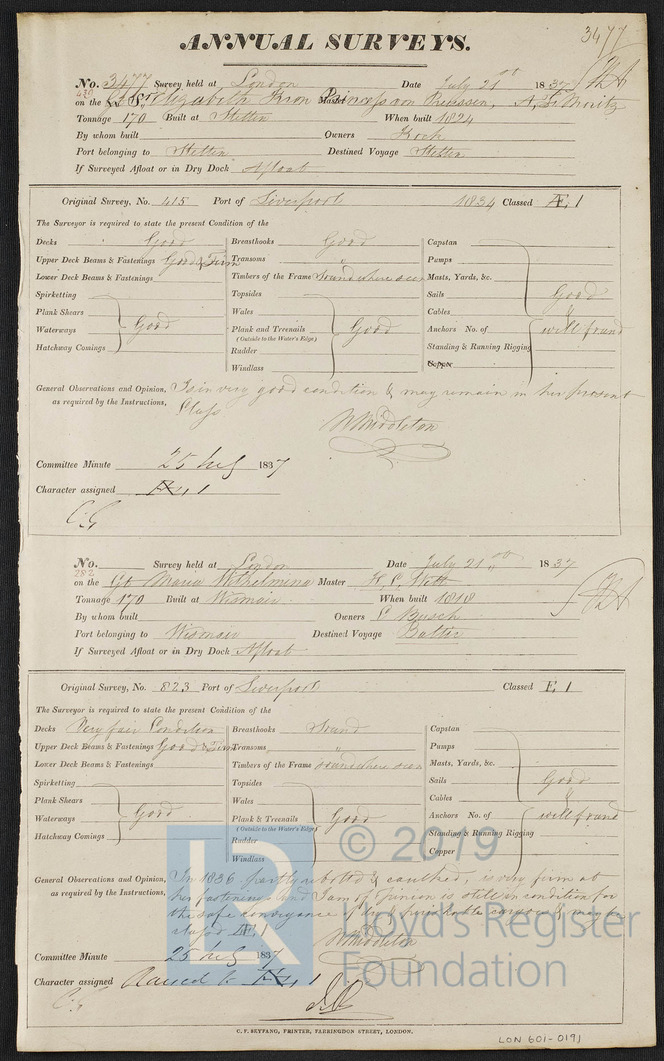 3477
ANNUAL SURVEYS.
No. 3477 Survey held at London Date July 21st 1837
on the Elizabeth Kron Princess von Preussen, Master
Tonnage 170 Built at Stettin When built 1824
By whom built Owners Koch
Port belonging to Stettin Destined Voyage Stettin
If Surveyed Afloat or in Dry Dock Afloat
Original Survey, No. 415 Port of Liverpool 1834 Classed Æ, 1
The Surveyor is required to state the present Condition of the
Decks Good Breasthooks Good Capstan
Upper Deck Beams & Fastenings Good & Firm Transoms " Pumps
Lower Deck Beams & Fastenings Timbers of the Frame Sound where seen Masts, Yards, &c.
Spirketting Topsides Sails Good
Plank Shears Wales Cables "
Waterways Good Plank and Treenails Good Anchors No. of well found
(Outside to the Water's Edge)
Hatchway Comings Rudder Standing & Running Rigging
Windlass Copper
General Observations and Opinion, Is in very good condition & may remain in her present
as required by the Instructions, Class
W Middleton
Committee Minute 25 July 1837
Character assigned Æ, 1
No. Survey held at London Date July 21st 1837
282
on the Gt Maria Wilhelmina Master
Tonnage 170 Built at Wismar When built 1818
By whom built Owners Busch
Port belonging to Wismar Destined Voyage Baltic
If Surveyed Afloat or in Dry Dock Afloat
Original Survey, No. 823 Port of Liverpool Classed E, 1
The Surveyor is required to state the present Condition of the
Decks Very fair Condition Breasthooks Sound Capstan
Upper Deck Beams & Fastenings Good & Firm Transoms " Pumps
Lower Deck Beams & Fastenings Timbers of the Frame sound where seen Masts, Yards, &c.
Spirketting Topsides Sails Good
Plank Shears Wales Cables "
Waterways Good Plank & Treenails Good Anchors No. of well found
(Outside to the Water's Edge)
Hatchway Comings Rudder Standing & Running Rigging
Windlass Copper
General Observations and Opinion, In 1836 partly rebolted & caulked, is very firm at
as required by the Instructions, her fastenings and I am of opinion is still in condition for
the safe conveyance of dry & perishable cargoes & may be
classed Æ, 1
W Middleton
Committee Minute 25 July 1837
Character assigned Raised to Æ, 1
C. F. SEYFANG, PRINTER, FARRINGDON STREET, LONDON.
LON 601-0191
© 2019
Lloyd's Register
Foundation